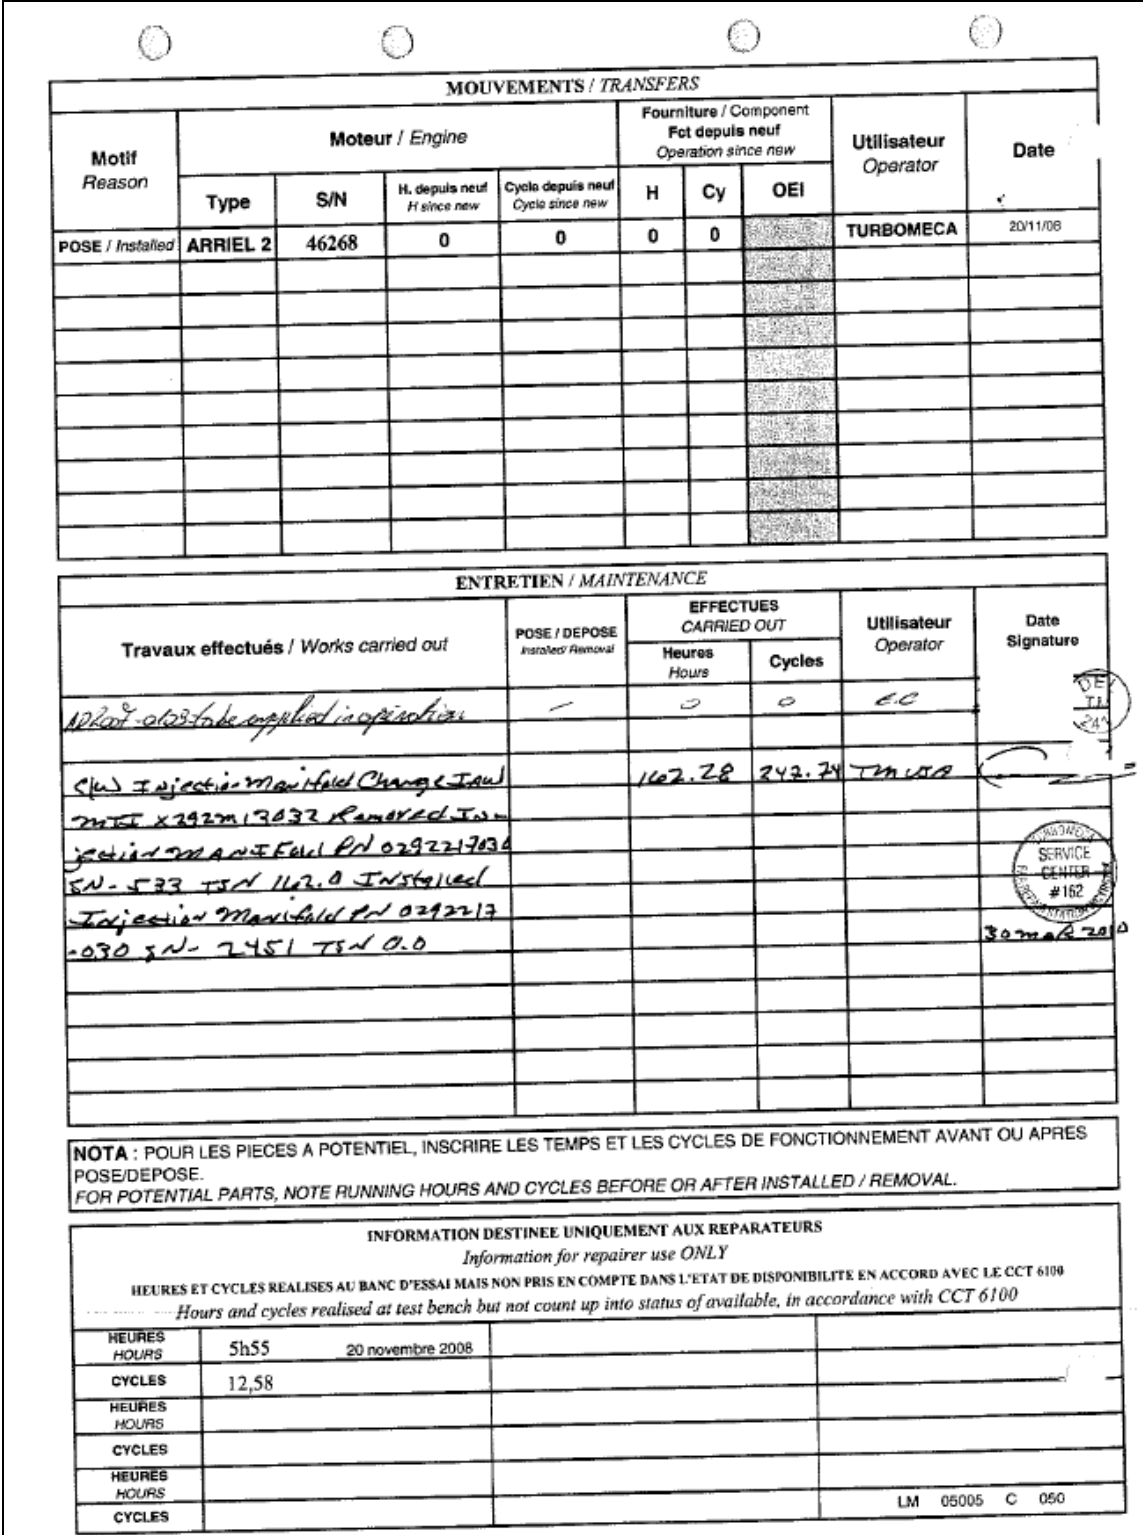 MOUVEMENTS / TRANSFERS
Motif
Reason
Moteur / Engine
Fourniture / Component
Fct depuis neuf
Operation since new
Utilisateur
Operator
Date
Type
S/N
H. depuis neuf
H since new
Cycle depuis neuf
Cycle since new
H
Cy
OEI
POSE / Installed ARRIEL 2 46268 0 0 0 0 TURBOMECA 20/11/08
ENTRETIEN / MAINTENANCE
Travaux effectués / Works carried out
POSE / DEPOSE
Installed/ Removal
EFFECTUES
CARRIED OUT
Heures
Hours
Cycles
Utilisateur
Operator
Date
Signature
to be applied in operation — 0 0 E.C
C/W Injection Manifold Change IAW 162.28 242.74 TMUSA
MTI X292M13032 Removed In-
jection MANIFold PN 0292217030
SN- 533 TSN 162.0 Installed
Injection Manifold PN 0292217
-030 SN- 2451 TSN 0.0
SERVICE
CENTER
#162
30 MAR 2010
NOTA : POUR LES PIECES A POTENTIEL, INSCRIRE LES TEMPS ET LES CYCLES DE FONCTIONNEMENT AVANT OU APRES
POSE/DEPOSE.
FOR POTENTIAL PARTS, NOTE RUNNING HOURS AND CYCLES BEFORE OR AFTER INSTALLED / REMOVAL.
INFORMATION DESTINEE UNIQUEMENT AUX REPARATEURS
Information for repairer use ONLY
HEURES ET CYCLES REALISES AU BANC D'ESSAI MAIS NON PRIS EN COMPTE DANS L'ETAT DE DISPONIBILITE EN ACCORD AVEC LE CCT 6100
Hours and cycles realised at test bench but not count up into status of available, in accordance with CCT 6100
HEURES
HOURS
5h55 20 novembre 2008
CYCLES 12,58
HEURES
HOURS
CYCLES
HEURES
HOURS
CYCLES
LM 05005 C 050